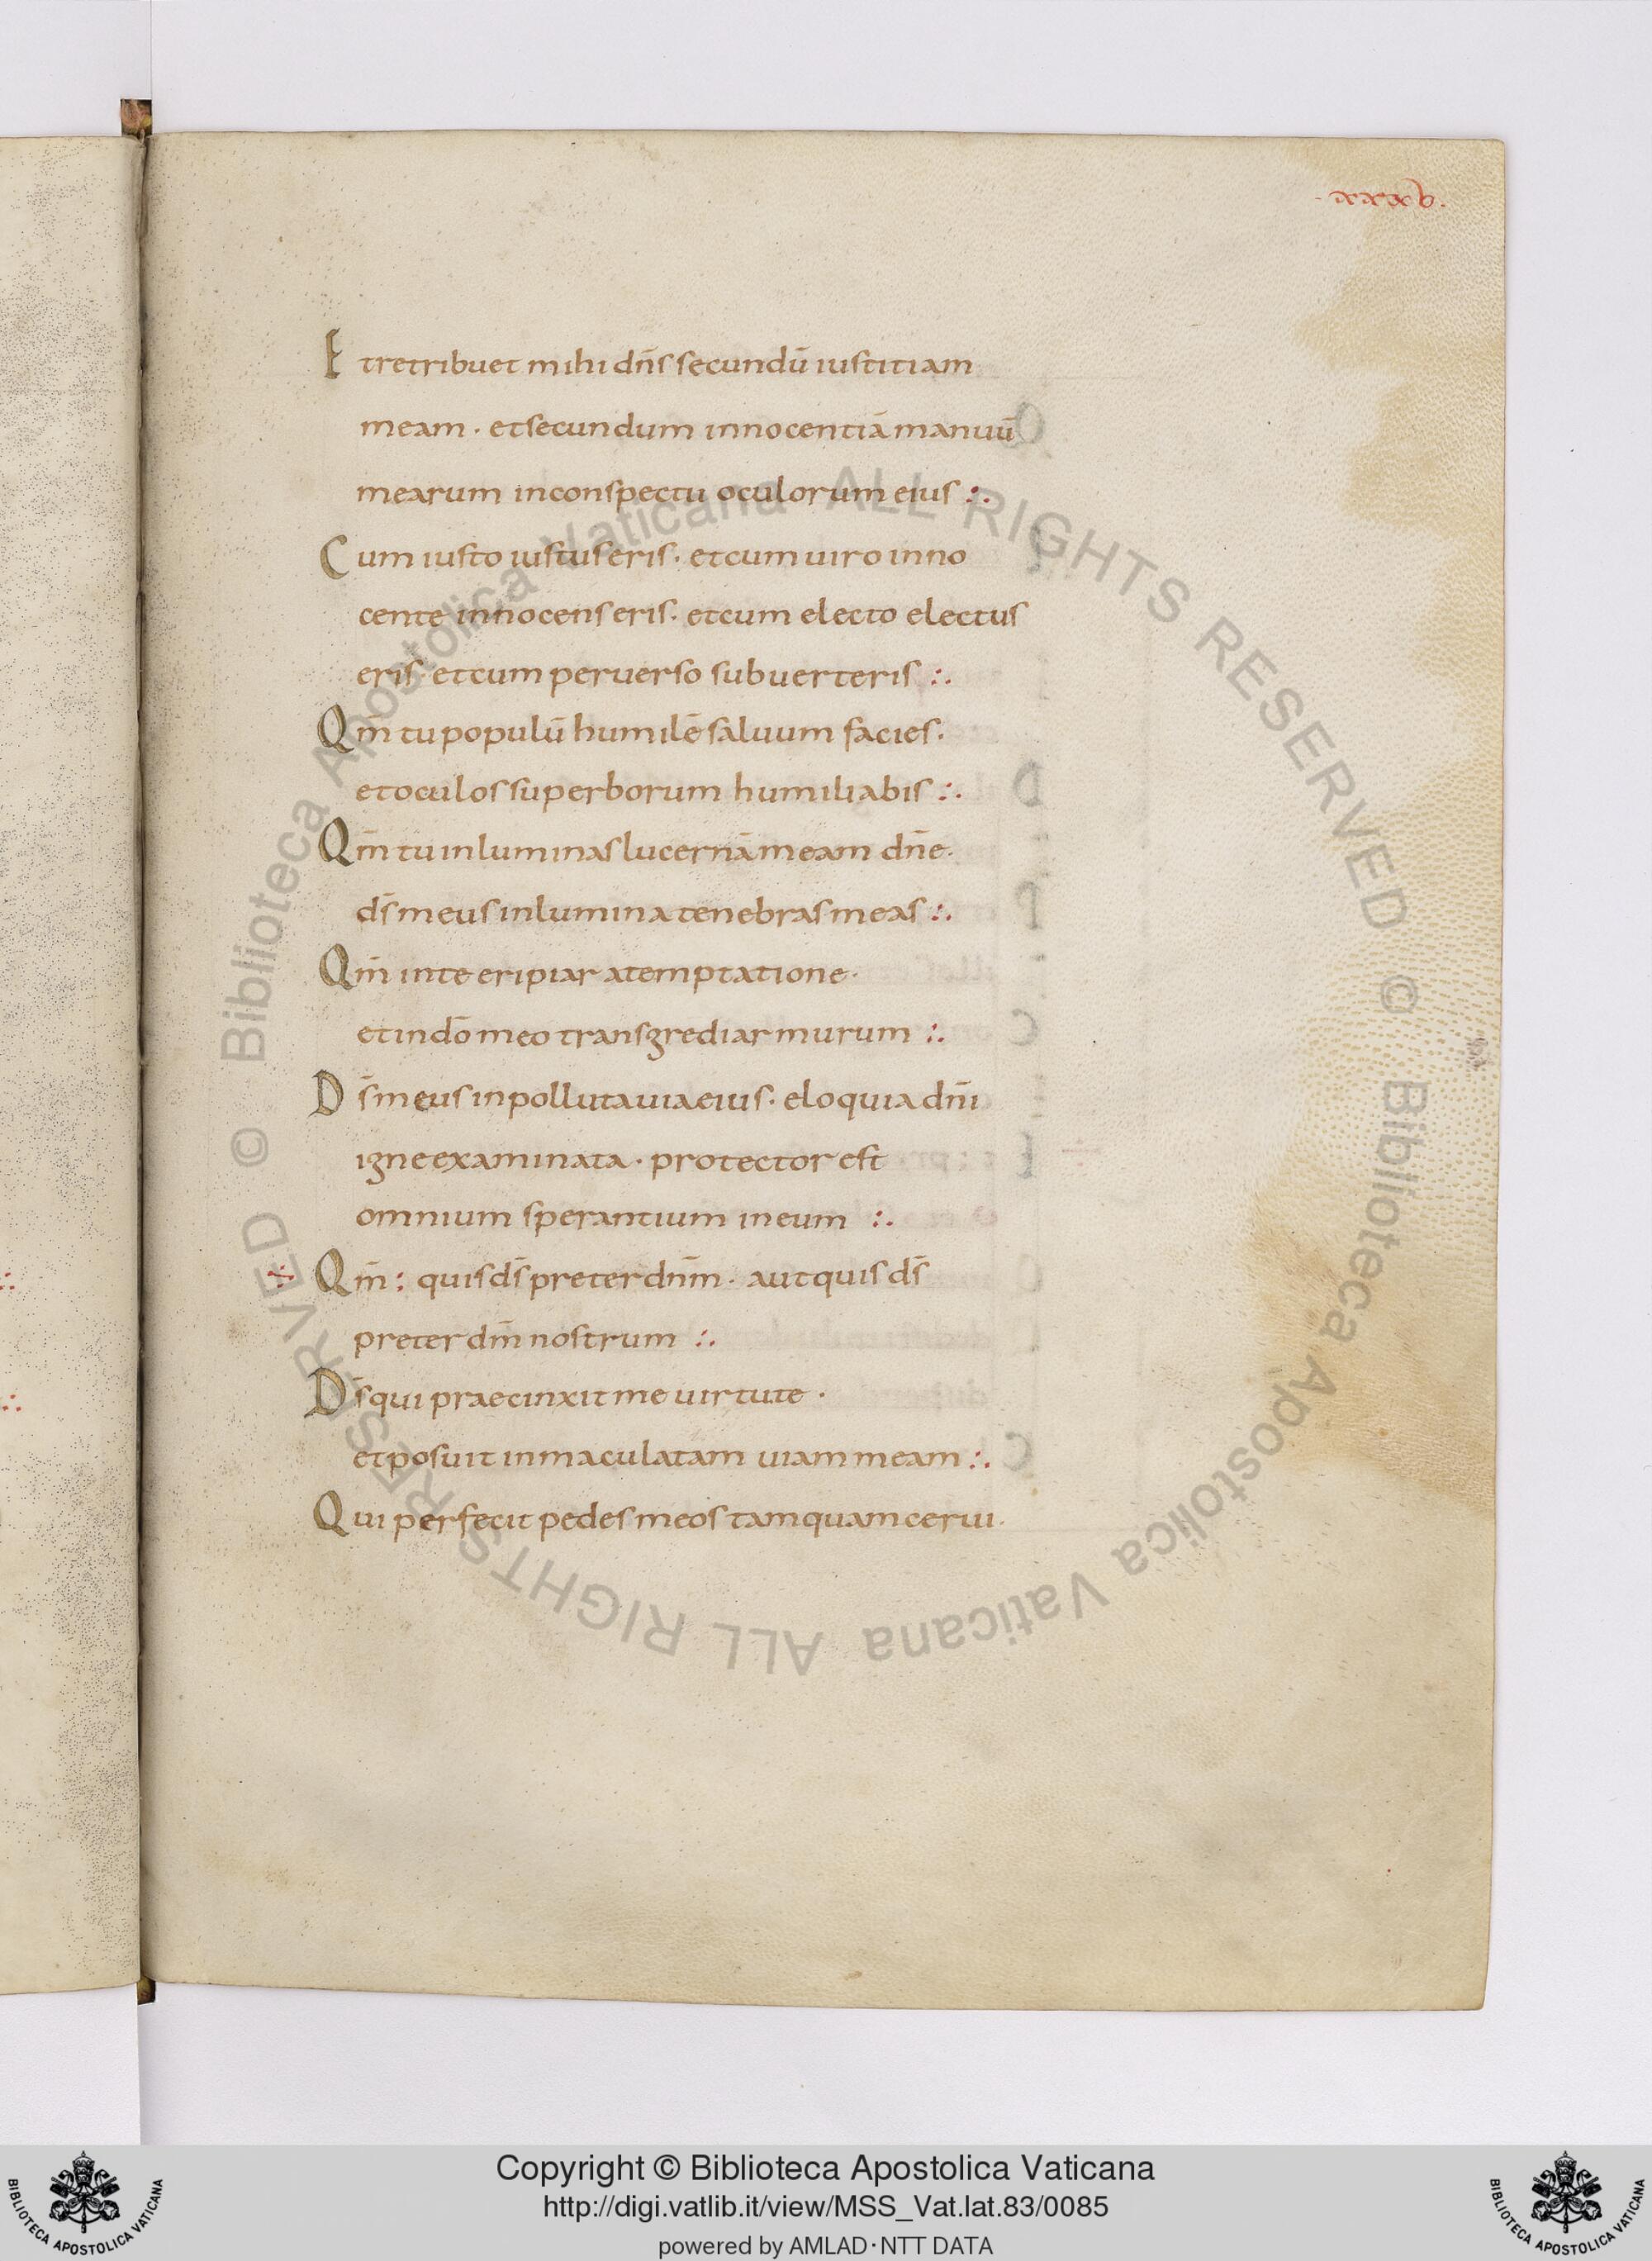 · xxxv ·
Et retribuet mihi dn̄s secundū iustitiam
meam · et secundum innocentiā manuū
mearum in conspectu oculorum eius :.
Cum iusto iustus eris · et cum uiro inno
cente innocens eris · et cum electo electus
eris · et cum peruerso subuerteris :.
Qm̄ tu populū humilē saluum facies ·
et oculos superborum humiliabis :.
Qm̄ tu inluminas lucernā meam dn̄e ·
ds̄ meus inlumina tenebras meas :.
Qm̄ in te eripiar a temptatione ·
et in dō meo transgrediar murum :.
Ds̄ meus inpolluta uia eius · eloquia dn̄i
igne examinata · protector est
omnium sperantium in eum :.
÷ Qm̄ : quis ds̄ preter dnm̄ · aut quis ds̄
preter dm̄ nostrum :.
Ds̄ qui praecinxit me uirtute ·
et posuit inmaculatam uiam meam :.
Qui perfecit pedes meos tamquam cerui ·
© Biblioteca Apostolica Vaticana ALL RIGHTS RESERVED © Biblioteca Apostolica Vaticana ALL RIGHTS RESERVED
Copyright © Biblioteca Apostolica Vaticana
http://digi.vatlib.it/view/MSS_Vat.lat.83/0085
powered by AMLAD·NTT DATA
BIBLIOTECA APOSTOLICA VATICANA
BIBLIOTECA APOSTOLICA VATICANA